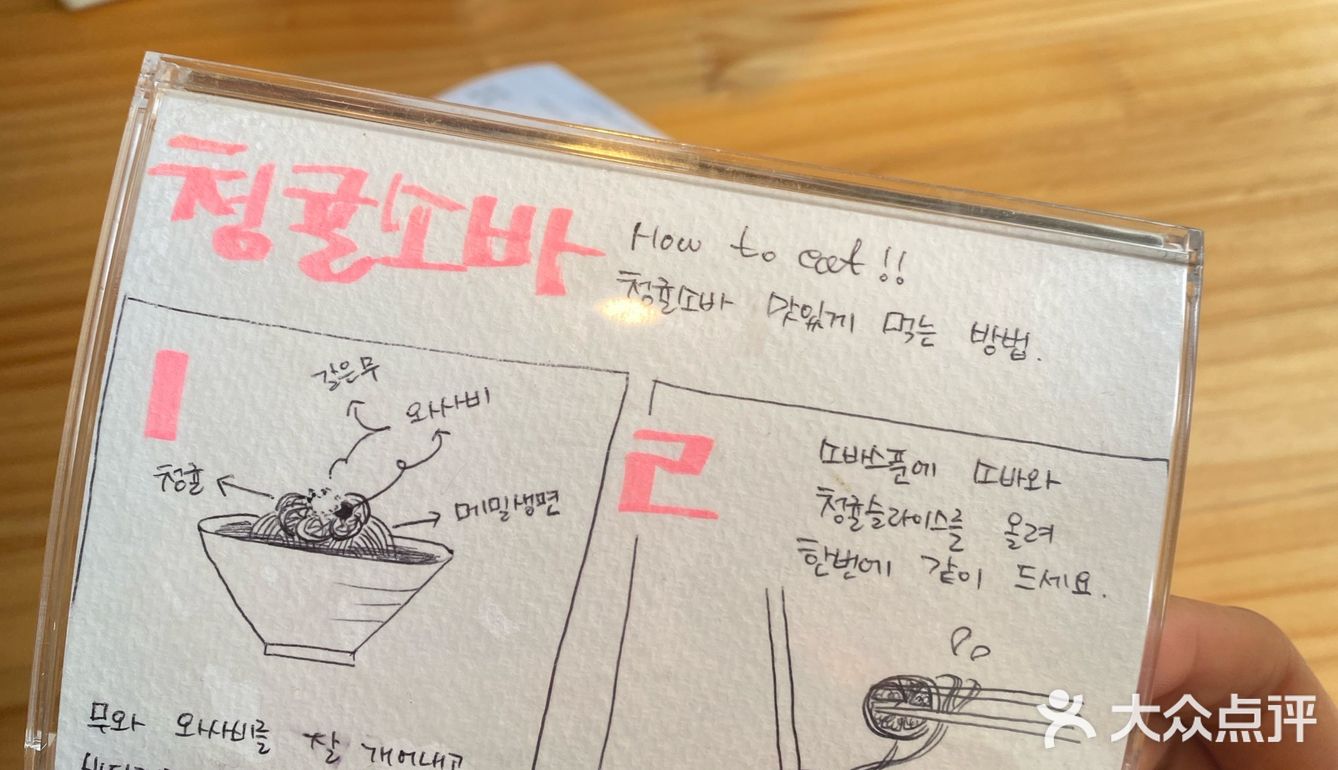 청귤소바
How to eat!!
청귤소바 맛있게 먹는 방법.
1
갈은무
와사비
청귤
메밀생면
무와 와사비를 잘 개어내고
2
소바스푼에 소바와
청귤슬라이스를 올려
한번에 같이 드세요.
大众点评